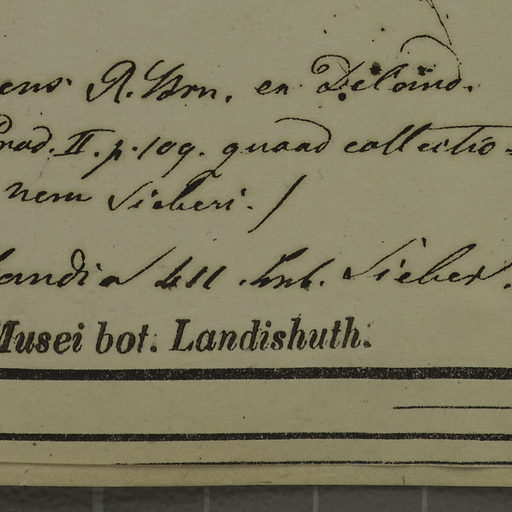 ens R. Brn. ex DeCand.
Prod. II. p. 109. quoad collectio-
nem Sieberi. /
Hb. Sieber.
Musei bot. Landishuth.